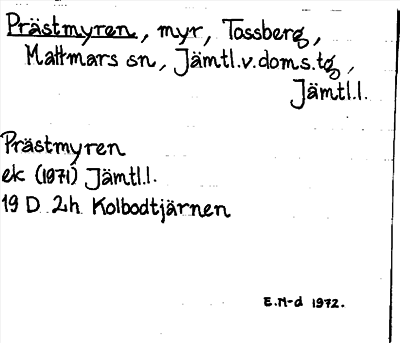 Prästmyren, myr, Tossberg,
Mattmars sn, Jämtl.v.doms.tg,
Jämtl.l.
Prästmyren
ek (1971) Jämtl.l.
19 D 2h Kolbodtjärnen
E.N-d 1972.